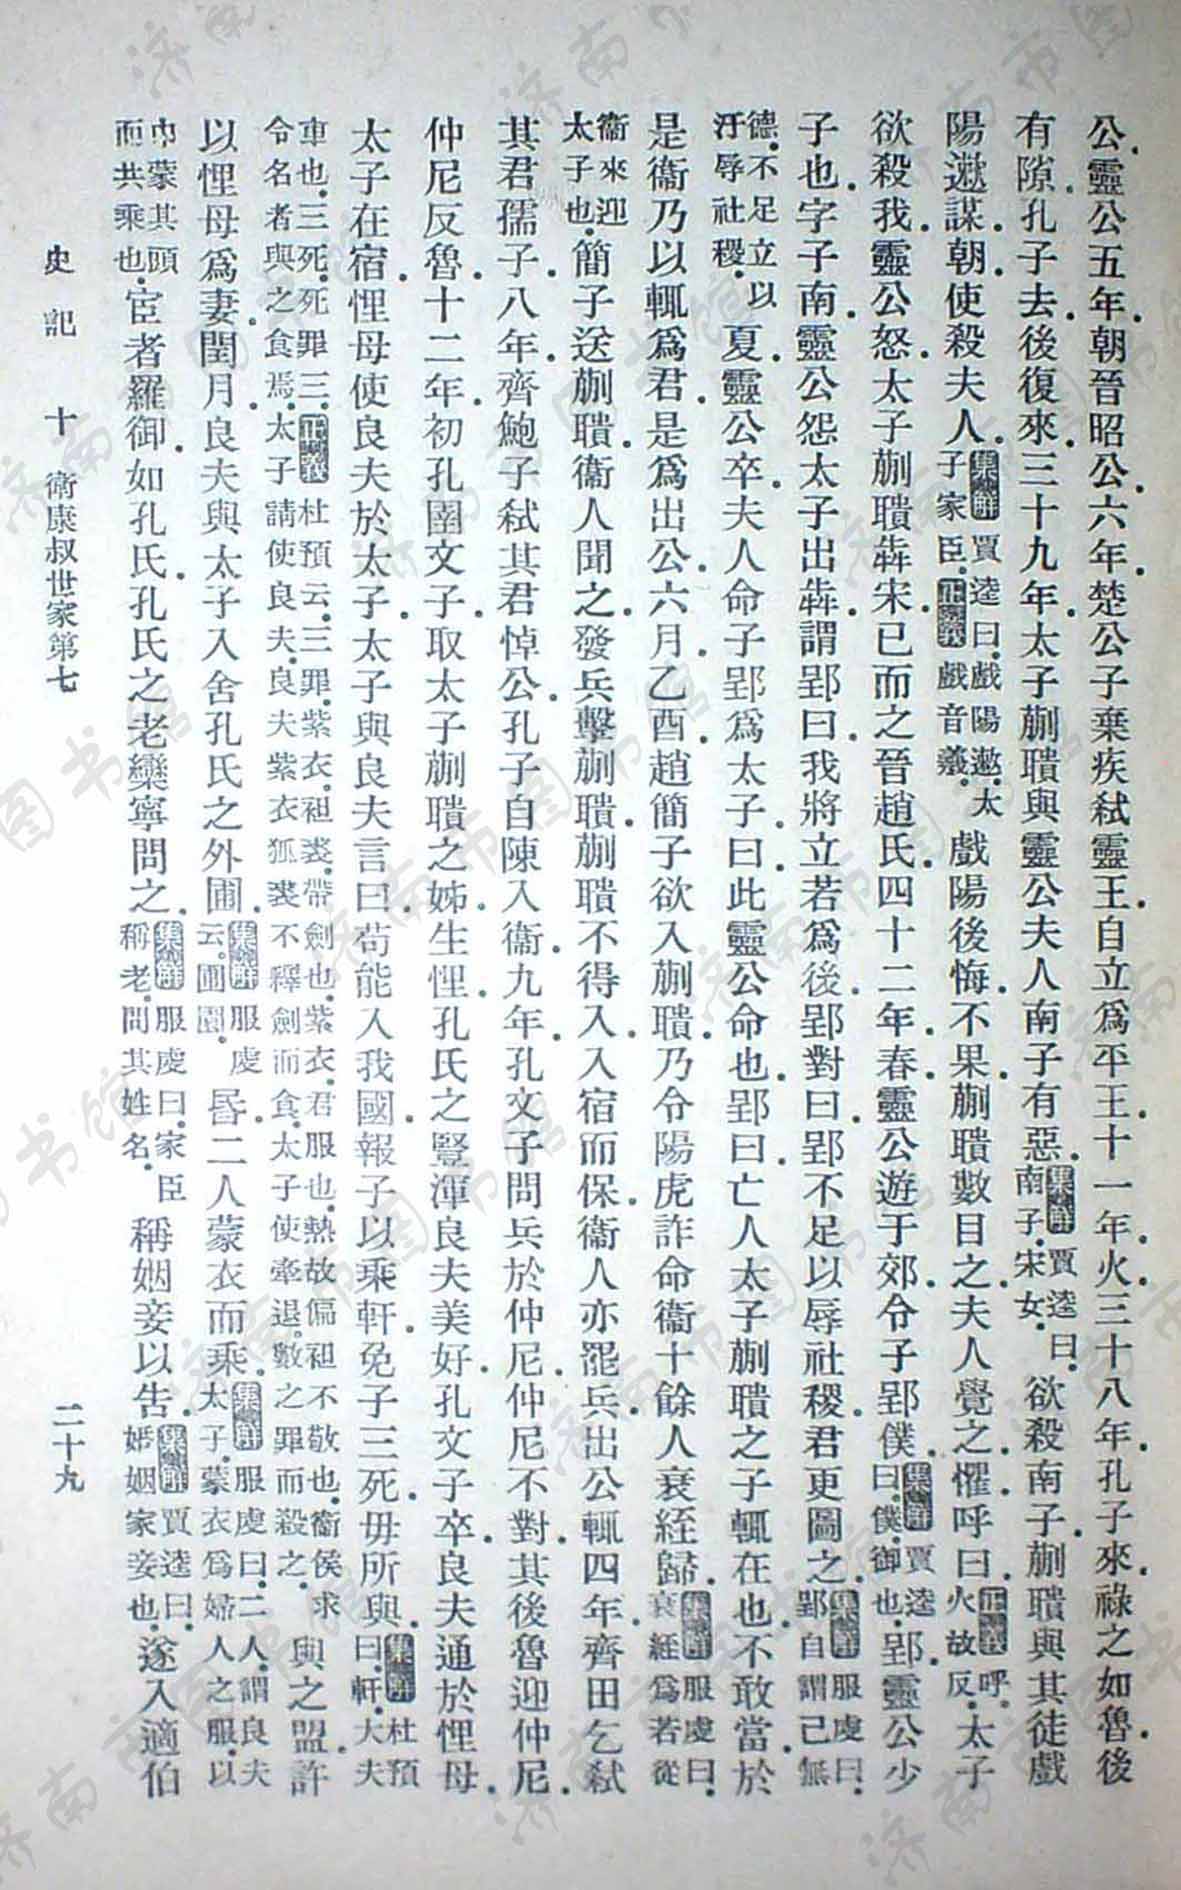 公靈公五年朝晉昭公六年楚公子棄疾弒靈王自立爲平王十一年火三十八年孔子來祿之如魯後
有隙孔子去後復來三十九年太子蒯聵與靈公夫人南子有惡集解賈逵曰南子宋女欲殺南子蒯聵與其徒戲
陽遬謀朝使殺夫人集解賈逵曰戲陽遬太子家臣正義戲音羲戲陽後悔不果蒯聵數目之夫人覺之懼呼曰正義呼火故反太子
欲殺我靈公怒太子蒯聵犇宋已而之晉趙氏四十二年春靈公遊于郊令子郢僕集解賈逵曰僕御也郢靈公少
子也字子南靈公怨太子出犇謂郢曰我將立若爲後郢對曰郢不足以辱社稷君更圖之集解服虔曰郢自謂己無
德不足立以汙辱社稷夏靈公卒夫人命子郢爲太子曰此靈公命也郢曰亡人太子蒯聵之子輒在也不敢當於
是衞乃以輒爲君是爲出公六月乙酉趙簡子欲入蒯聵乃令陽虎詐命衞十餘人衰絰歸集解服虔曰衰絰爲若從
衞來迎太子也簡子送蒯聵衞人聞之發兵擊蒯聵蒯聵不得入入宿而保衞人亦罷兵出公輒四年齊田乞弒
其君孺子八年齊鮑子弒其君悼公孔子自陳入衞九年孔文子問兵於仲尼仲尼不對其後魯迎仲尼
仲尼反魯十二年初孔圉文子取太子蒯聵之姊生悝孔氏之豎渾良夫美好孔文子卒良夫通於悝母
太子在宿悝母使良夫於太子太子與良夫言曰苟能入我國報子以乘軒免子三死毋所與集解杜預曰軒大夫
車也三死死罪三正義杜預云三罪紫衣袒裘帶劍也紫衣君服也熱故偏袒不敬也衞侯求令名者與之食焉太子請使良夫良夫紫衣狐裘不釋劍而食太子使牽退數之罪而殺之與之盟許
以悝母爲妻閏月良夫與太子入舍孔氏之外圃集解服虔云圃園昬二人蒙衣而乘集解服虔曰二人謂良夫太子蒙衣爲婦人之服以
巾蒙其頭而共乘也宦者羅御如孔氏孔氏之老欒寧問之集解服虔曰家臣稱老問其姓名稱姻妾以告集解賈逵曰婚姻家妾也遂入適伯
史記 十 衛康叔世家第七 二十九